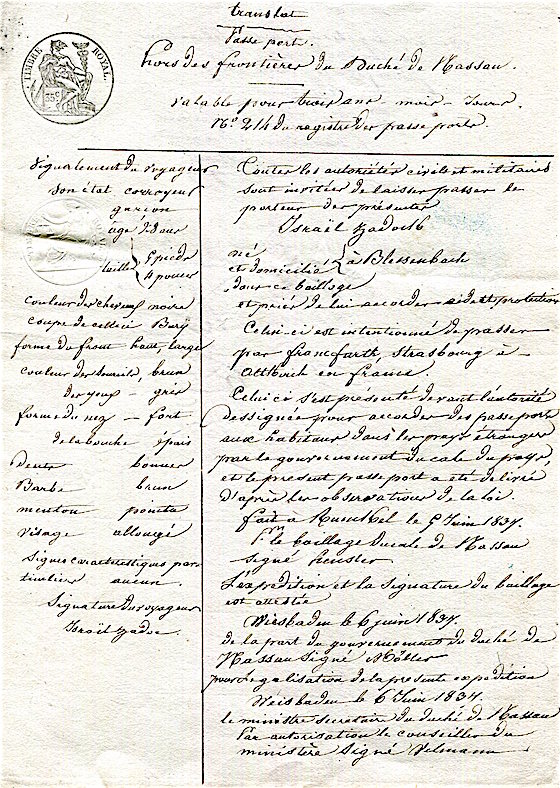 translat
Passe port.
hors des frontières du Duché de Nassau.
TIMBRE ROYAL.
35c
valable pour trois ans - mois - Jours
No. 214 du registre des passe ports.
Signalement du voyageur
Son état corroyeur
garçon
âge 28 ans
taille 5 pieds
4 pouces
couleur des cheveux noire
coupe de celle ci
forme du front haut, large
couleur des sourcils, brun
des yeux - gris
forme du nez - fort
de la bouche épais
dents bonnes
Barbe brun
menton pointu
visage allongé
Signes caractéristiques par
ticulier aucun.
Signature du voyageur
Israël Zadoc.
Toutes les autoriétés civils et militaires
sont invitées de laisser passer le
porteur des présentes
Israël Zadock
né
et domicilié à Blessenbach
dans ce bailloge
et priés de lui accorder aide et protection
Celui-ci est intentionné de passer
par francfurth, Strasbourg à -
Altkirch en france.
Celui ci s'est présenté devant l'autorité
designée pour accorder des passe port
aux habitans dans les prays étranger
par le gouvernement du
et le present passe port a été delivré
d'après les observations de la loi.
fait a Runkel le 5 Juin 1837.
le bailloge ducale de Nassau
signé
L'expédition et la signature du bailloge
est attestée
Wiesbaden le 6 juin 1837.
de la part du gouvernement du duché de
Nassau Signé Möller
pour légalisation de la presente expédition
Weisbaden le 6 Juin 1837.
le ministre secretaire du duché de Nassau
Par autorisation le conseiller du
ministère Signé